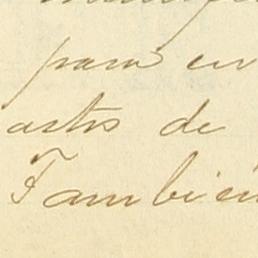 para en
artes de
Tambien